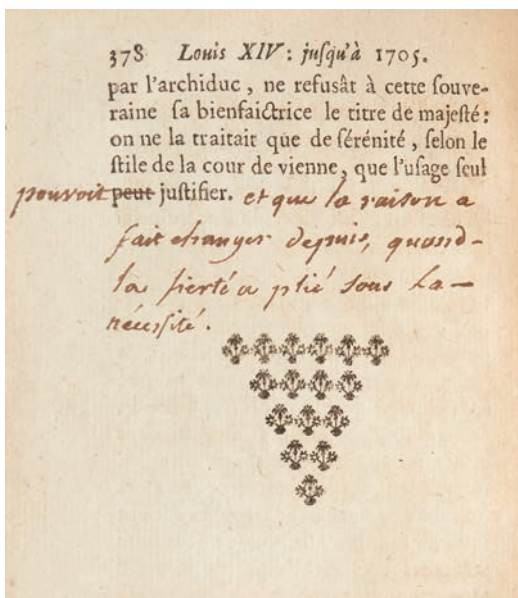 378 Louis XIV : juſqu'à 1705.
par l'archiduc , ne refuſât à cette ſouve-
raine ſa bienfaictrice le titre de majeſté :
on ne la traitait que de ſérénité , ſelon le
ſtile de la cour de vienne, que l'uſage ſeul
pouvoit peut juſtifier. et que la raison a
fait changer depuis, quand-
la fierté a plié sous la-
néceſſité.